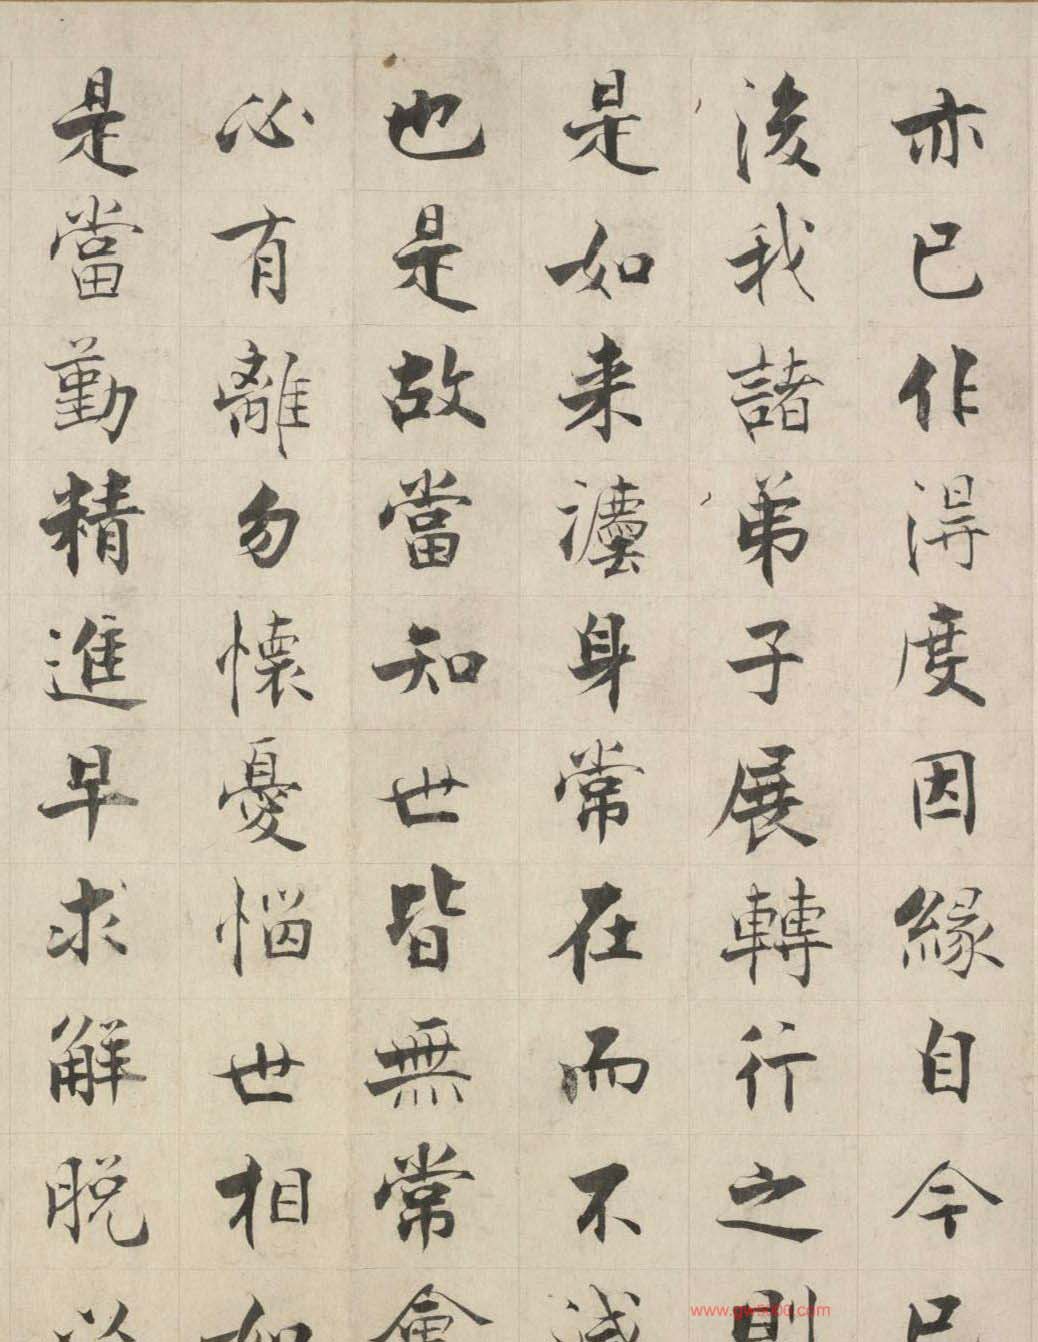 亦已作得度因緣自今已
後我諸弟子展轉行之則
是如来灋身常在而不滅
也是故當知世皆無常會
必有離勿懷憂惱世相如
是當勤精進早求解脫以
www.gw5000.com